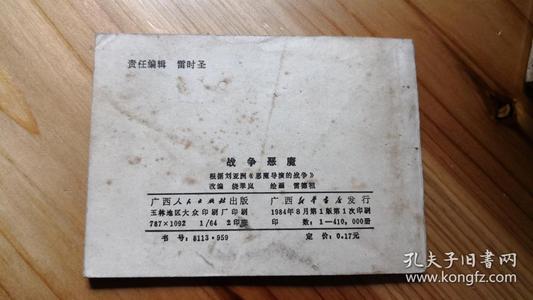 责任编辑 雷时圣
战争恶魔
根据刘亚洲《恶魔导演的战争》
改编 饶翠岚 绘画 雷德祖
广西人民出版社出版 广西新华书店发行
玉林地区大众印刷厂印刷 1984年8月第1版第1次印刷
787×1092 1/64 2印张 印数:1—410,000册
书号:8113·959 定价:0.17元
孔夫子旧书网
kongfz.com